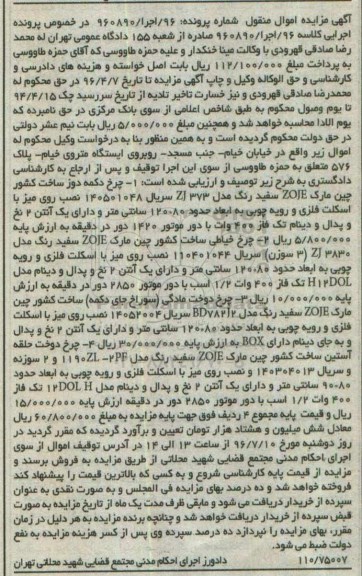 آگهی مزایده اموال منقول شماره پرونده: ۹۶/اجرا/۹۶۰۸۹۰ در خصوص پرونده
اجرایی کلاسه ۹۶/اجرا/۹۶۰۸۹۰ صادره از شعبه ۱۵۵ دادگاه عمومی تهران له محمد
رضا صادقی قهرودی با وکالت مینا خنکدار و علیه حمزه طاووسی که آقای حمزه طاووسی
به پرداخت مبلغ ۱۱۲/۱۰۰/۰۰۰ ریال بابت اصل خواسته و هزینه های دادرسی و
کارشناسی و حق الوکاله وکیل و چاپ آگهی مزایده تا تاریخ ۹۶/۴/۷ در حق محکوم له
محمدرضا صادقی قهرودی و نیز خسارت تاخیر تادیه از تاریخ سررسید چک ۹۴/۴/۱۵
تا یوم وصول محکوم به طبق شاخص اعلامی از سوی بانک مرکزی در حق نامبرده که
یوم الادا محاسبه خواهد شد و همچنین مبلغ ۵/۰۰۰/۰۰۰ ریال بابت نیم عشر دولتی
در حق دولت محکوم گردیده است و به همین منظور بنا به درخواست وکیل محکوم له
اموال زیر واقع در خیابان خیام- جنب مسجد- روبروی ایستگاه متروی خیام- پلاک
۵۷۶ متعلق به حمزه طاووسی از سوی این اجرا توقیف و پس از ارجاع به کارشناسی
دادگستری به شرح زیر توصیف و ارزیابی شده است: ۱- چرخ دکمه دوز ساخت کشور
چین مارک ZOJE سفید رنگ مدل ZJ ۳۷۳ سریال ۱۴۰۵۰۱۰۴۸ نصب روی میز با
اسکلت فلزی و رویه چوبی به ابعاد حدود ۱۲۰،۸۰ سانتی متر و دارای یک آنتن ۲ نخ
و پدال و دینام تک فاز ۴۰۰ وات با دور موتور ۱۴۲۰ دور در دقیقه به ارزش پایه
۵/۸۰۰/۰۰۰ ریال ۲- چرخ خیاطی ساخت کشور چین مارک ZOJE سفید رنگ مدل
ZJ ۳۸۳۰ (۳ سوزن) سریال ۱۱۰۴۰۱۰۴۴ نصب روی میز با اسکلت فلزی و رویه
چوبی به ابعاد حدود ۱۲۰،۸۰ سانتی متر و دارای یک آنتن ۲ نخ و پدال و دینام مدل
H۱۲DOL تک فاز ۴۰۰ وات ۱/۲ اسب با دور موتور ۲۸۵۰ دور در دقیقه به ارزش
پایه ۱۰/۰۰۰/۰۰۰ ریال ۳- چرخ دوخت مادگی (سوراخ جای دکمه) ساخت کشور چین
مارک ZOJE سفید رنگ مدل BD۷۸۲|۲ سریال ۱۴۰۵۲۰۰۴ نصب روی میز با اسکلت
فلزی و رویه چوبی به ابعاد حدود ۱۲۰،۸۰ سانتی متر و دارای یک آنتن ۲ نخ و پدال
و به جای دینام دارای BOX به ارزش پایه ۳۰/۰۰۰/۰۰۰ ریال ۴- چرخ دوخت حلقه
آستین ساخت کشور چین مارک ZOJE سفید رنگ مدل ۱۱۹۰ZL -۲PF و ۲ سوزنه
و سریال ۱۴۰۳۰۴۰۱۳ و نصب روی میز با اسکلت فلزی و رویه چوبی به ابعاد حدود
۹۰،۸۰ سانتی متر و دارای یک آنتن ۲ نخ و پدال و دینام مدل ۱۲DOL H تک فاز
۴۰۰ وات ۱/۲ اسب با دور موتور ۲۸۵۰ دور در دقیقه ارزش پایه ۱۵/۰۰۰/۰۰۰
ریال و قیمت پایه مجموع ۴ ردیف فوق جهت پایه مزایده به مبلغ ۶۰/۸۰۰/۰۰۰ ریال
معادل شش میلیون و هشتاد هزار تومان تعیین و برآورد گردیده که مقرر گردید در
روز دوشنبه مورخ ۹۶/۷/۱۰ از ساعت ۱۳ الی ۱۴ در آدرس توقیف اموال از سوی
اجرای احکام مدنی مجتمع قضایی شهید محلاتی از طریق مزایده به فروش برسند و
مزایده از قیمت پایه کارشناسی شروع و به کسی که بالاترین قیمت را پیشنهاد کند
فروخته خواهد شد و ده درصد بهای مزایده فی المجلس و به صورت نقدی به عنوان
سپرده از خریدار دریافت می شود و مابقی ظرف مدت یک ماه از تاریخ مزایده به صورت
قبض سپرده از خریدار دریافت خواهد شد و چنانچه برنده مزایده به هر دلیل در زمان
مقرر، بهای مزایده را نپردازد ده درصد سپرده وی پس از کسر هزینه مزایده به نفع
دولت ضبط می شود.
۱۱۰/۷۵۰۰۷ دادورز اجرای احکام مدنی مجتمع قضایی شهید محلاتی تهران